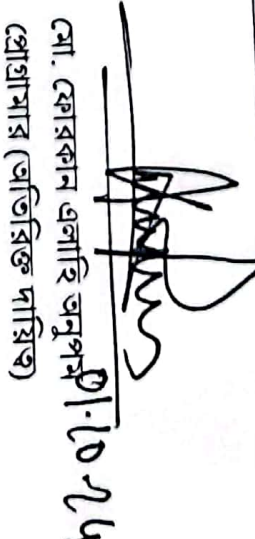 01.10.24
মো. ফোরকান এলাহি অনুপম
প্রোগ্রামার (অতিরিক্ত দায়িত্ব)